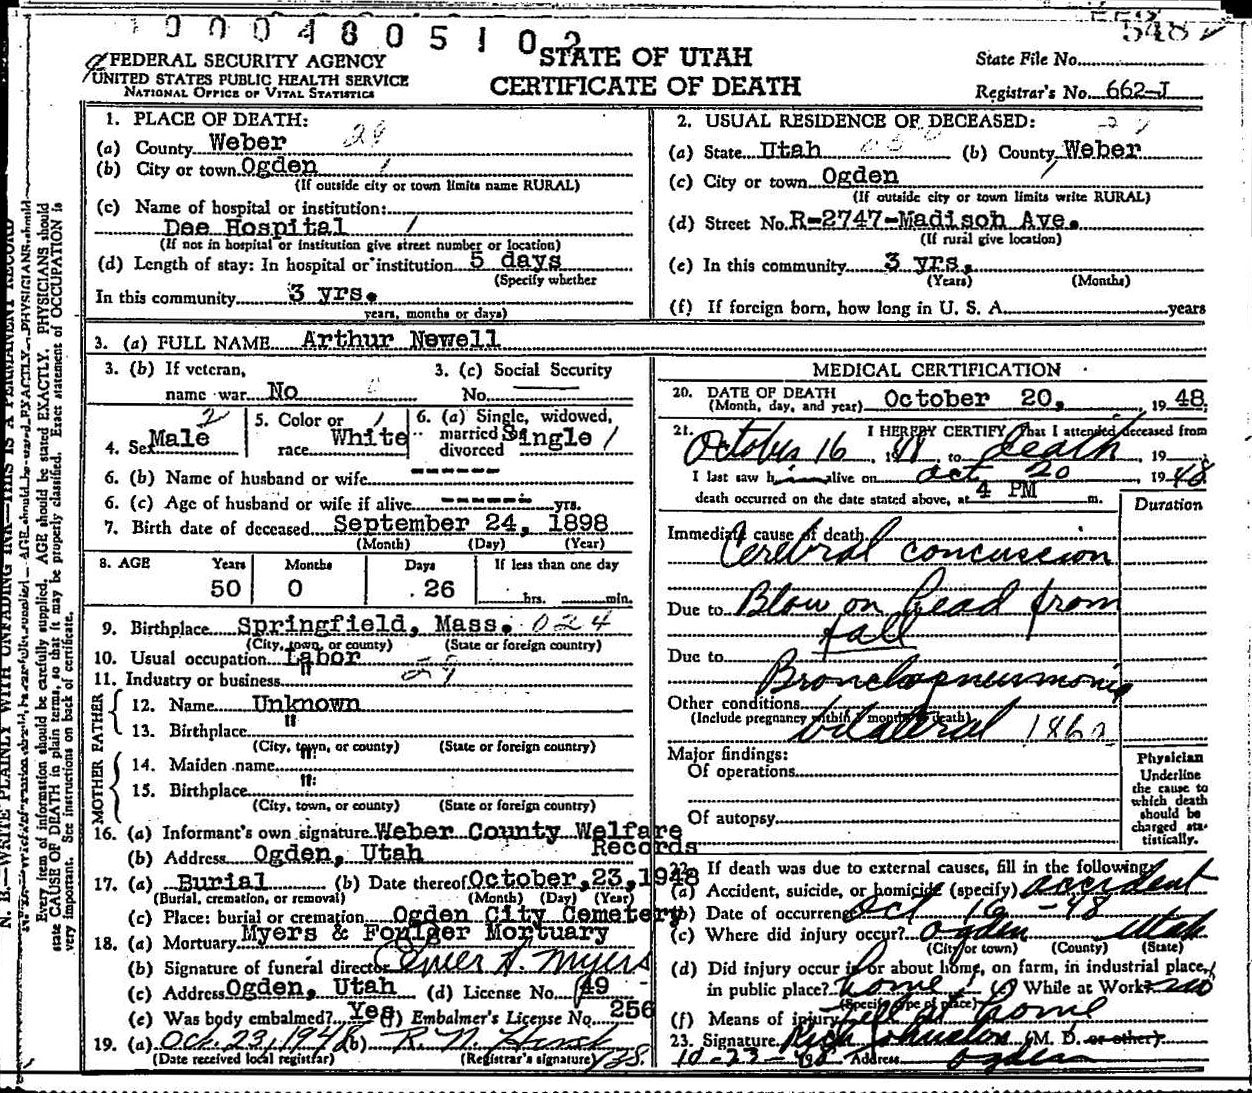 1000480510
548
STATE OF UTAH
CERTIFICATE OF DEATH
FEDERAL SECURITY AGENCY
UNITED STATES PUBLIC HEALTH SERVICE
NATIONAL OFFICE OF VITAL STATISTICS
State File No.
Registrar's No. 662-J
1. PLACE OF DEATH:
(a) County Weber
(b) City or town Ogden
(If outside city or town limits name RURAL)
(c) Name of hospital or institution:
Dee Hospital
(If not in hospital or institution give street number or location)
(d) Length of stay: In hospital or institution 5 days
(Specify whether
In this community 3 yrs.
years, months or days)
2. USUAL RESIDENCE OF DECEASED:
(a) State Utah (b) County Weber
(c) City or town Ogden
(If outside city or town limits write RURAL)
(d) Street No. R-2747-Madison Ave.
(If rural give location)
(e) In this community 3 yrs.
(Years) (Months)
(f) If foreign born, how long in U. S. A. years
3. (a) FULL NAME Arthur Newell
3. (b) If veteran,
name war No
3. (c) Social Security
No.
4. Sex Male
5. Color or
race White
6. (a) Single, widowed,
married Single
divorced
6. (b) Name of husband or wife ------
6. (c) Age of husband or wife if alive ------ yrs.
7. Birth date of deceased September 24, 1898
(Month) (Day) (Year)
8. AGE Years Months Days If less than one day
50 0 26 hrs. min.
9. Birthplace Springfield, Mass. 024
(City, town, or county) (State or foreign country)
10. Usual occupation Labor
11. Industry or business "
FATHER
12. Name Unknown
13. Birthplace "
(City, town, or county) (State or foreign country)
MOTHER
14. Maiden name "
15. Birthplace "
(City, town, or county) (State or foreign country)
16. (a) Informant's own signature Weber County Welfare
Records
(b) Address Ogden, Utah
17. (a) Burial (b) Date thereof October, 23, 1948
(Burial, cremation, or removal) (Month) (Day) (Year)
(c) Place: burial or cremation Ogden City Cemetery
18. (a) Mortuary Myers & Foulger Mortuary
(b) Signature of funeral director A. Myers
(c) Address Ogden, Utah (d) License No. 49
(e) Was body embalmed? Yes (f) Embalmer's License No. 256
19. (a) Oct. 23, 1948 (b) R. N.
(Date received local registrar) (Registrar's signature)
MEDICAL CERTIFICATION
20. DATE OF DEATH
(Month, day, and year) October 20, 1948
21. I HEREBY CERTIFY That I attended deceased from
October 16, 1948, to death, 19
I last saw him alive on Oct 20, 1948
death occurred on the date stated above, at 4 PM m.
Duration
Immediate cause of death
Cerebral concussion
Due to Blow on head from
fall
Due to
Bronchopneumonia
Other conditions
(Include pregnancy within 3 months of death)
bilateral
Major findings:
Of operations
Of autopsy
Physician
Underline
the cause to
which death
should be
charged sta-
tistically.
22. If death was due to external causes, fill in the following:
(a) Accident, suicide, or homicide (specify) accident
(b) Date of occurrence Oct 16 -48
(c) Where did injury occur? Ogden Utah
(City or town) (County) (State)
(d) Did injury occur in or about home, on farm, in industrial place,
in public place? home (e) While at Work? no
(Specify type of place)
(f) Means of injury fell at home
23. Signature Rich Johnston (M. D. or other)
10-23-48 Address Ogden
N. B.—WRITE PLAINLY WITH UNFADING INK—THIS IS A PERMANENT RECORD
Every item of information should be carefully supplied. AGE should be stated EXACTLY. PHYSICIANS should
state CAUSE OF DEATH in plain terms, so that it may be properly classified. Exact statement of OCCUPATION is
very important. See instructions on back of certificate.